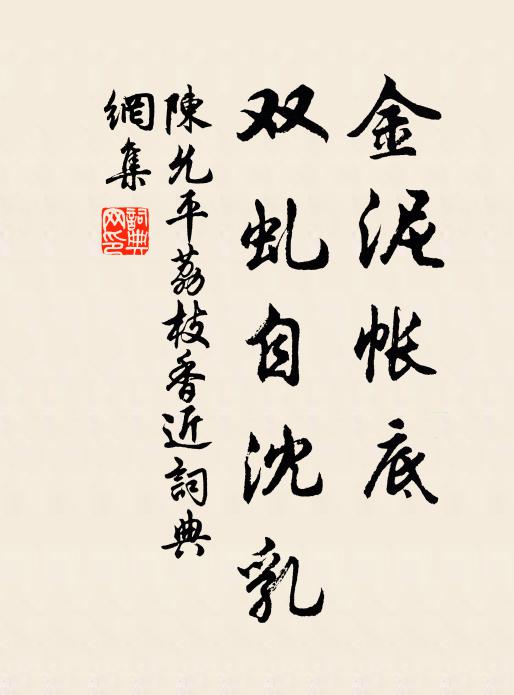 金泥帐底
双虬自沈乳
陳允平荔枝香近詞典
網集
詞典網印